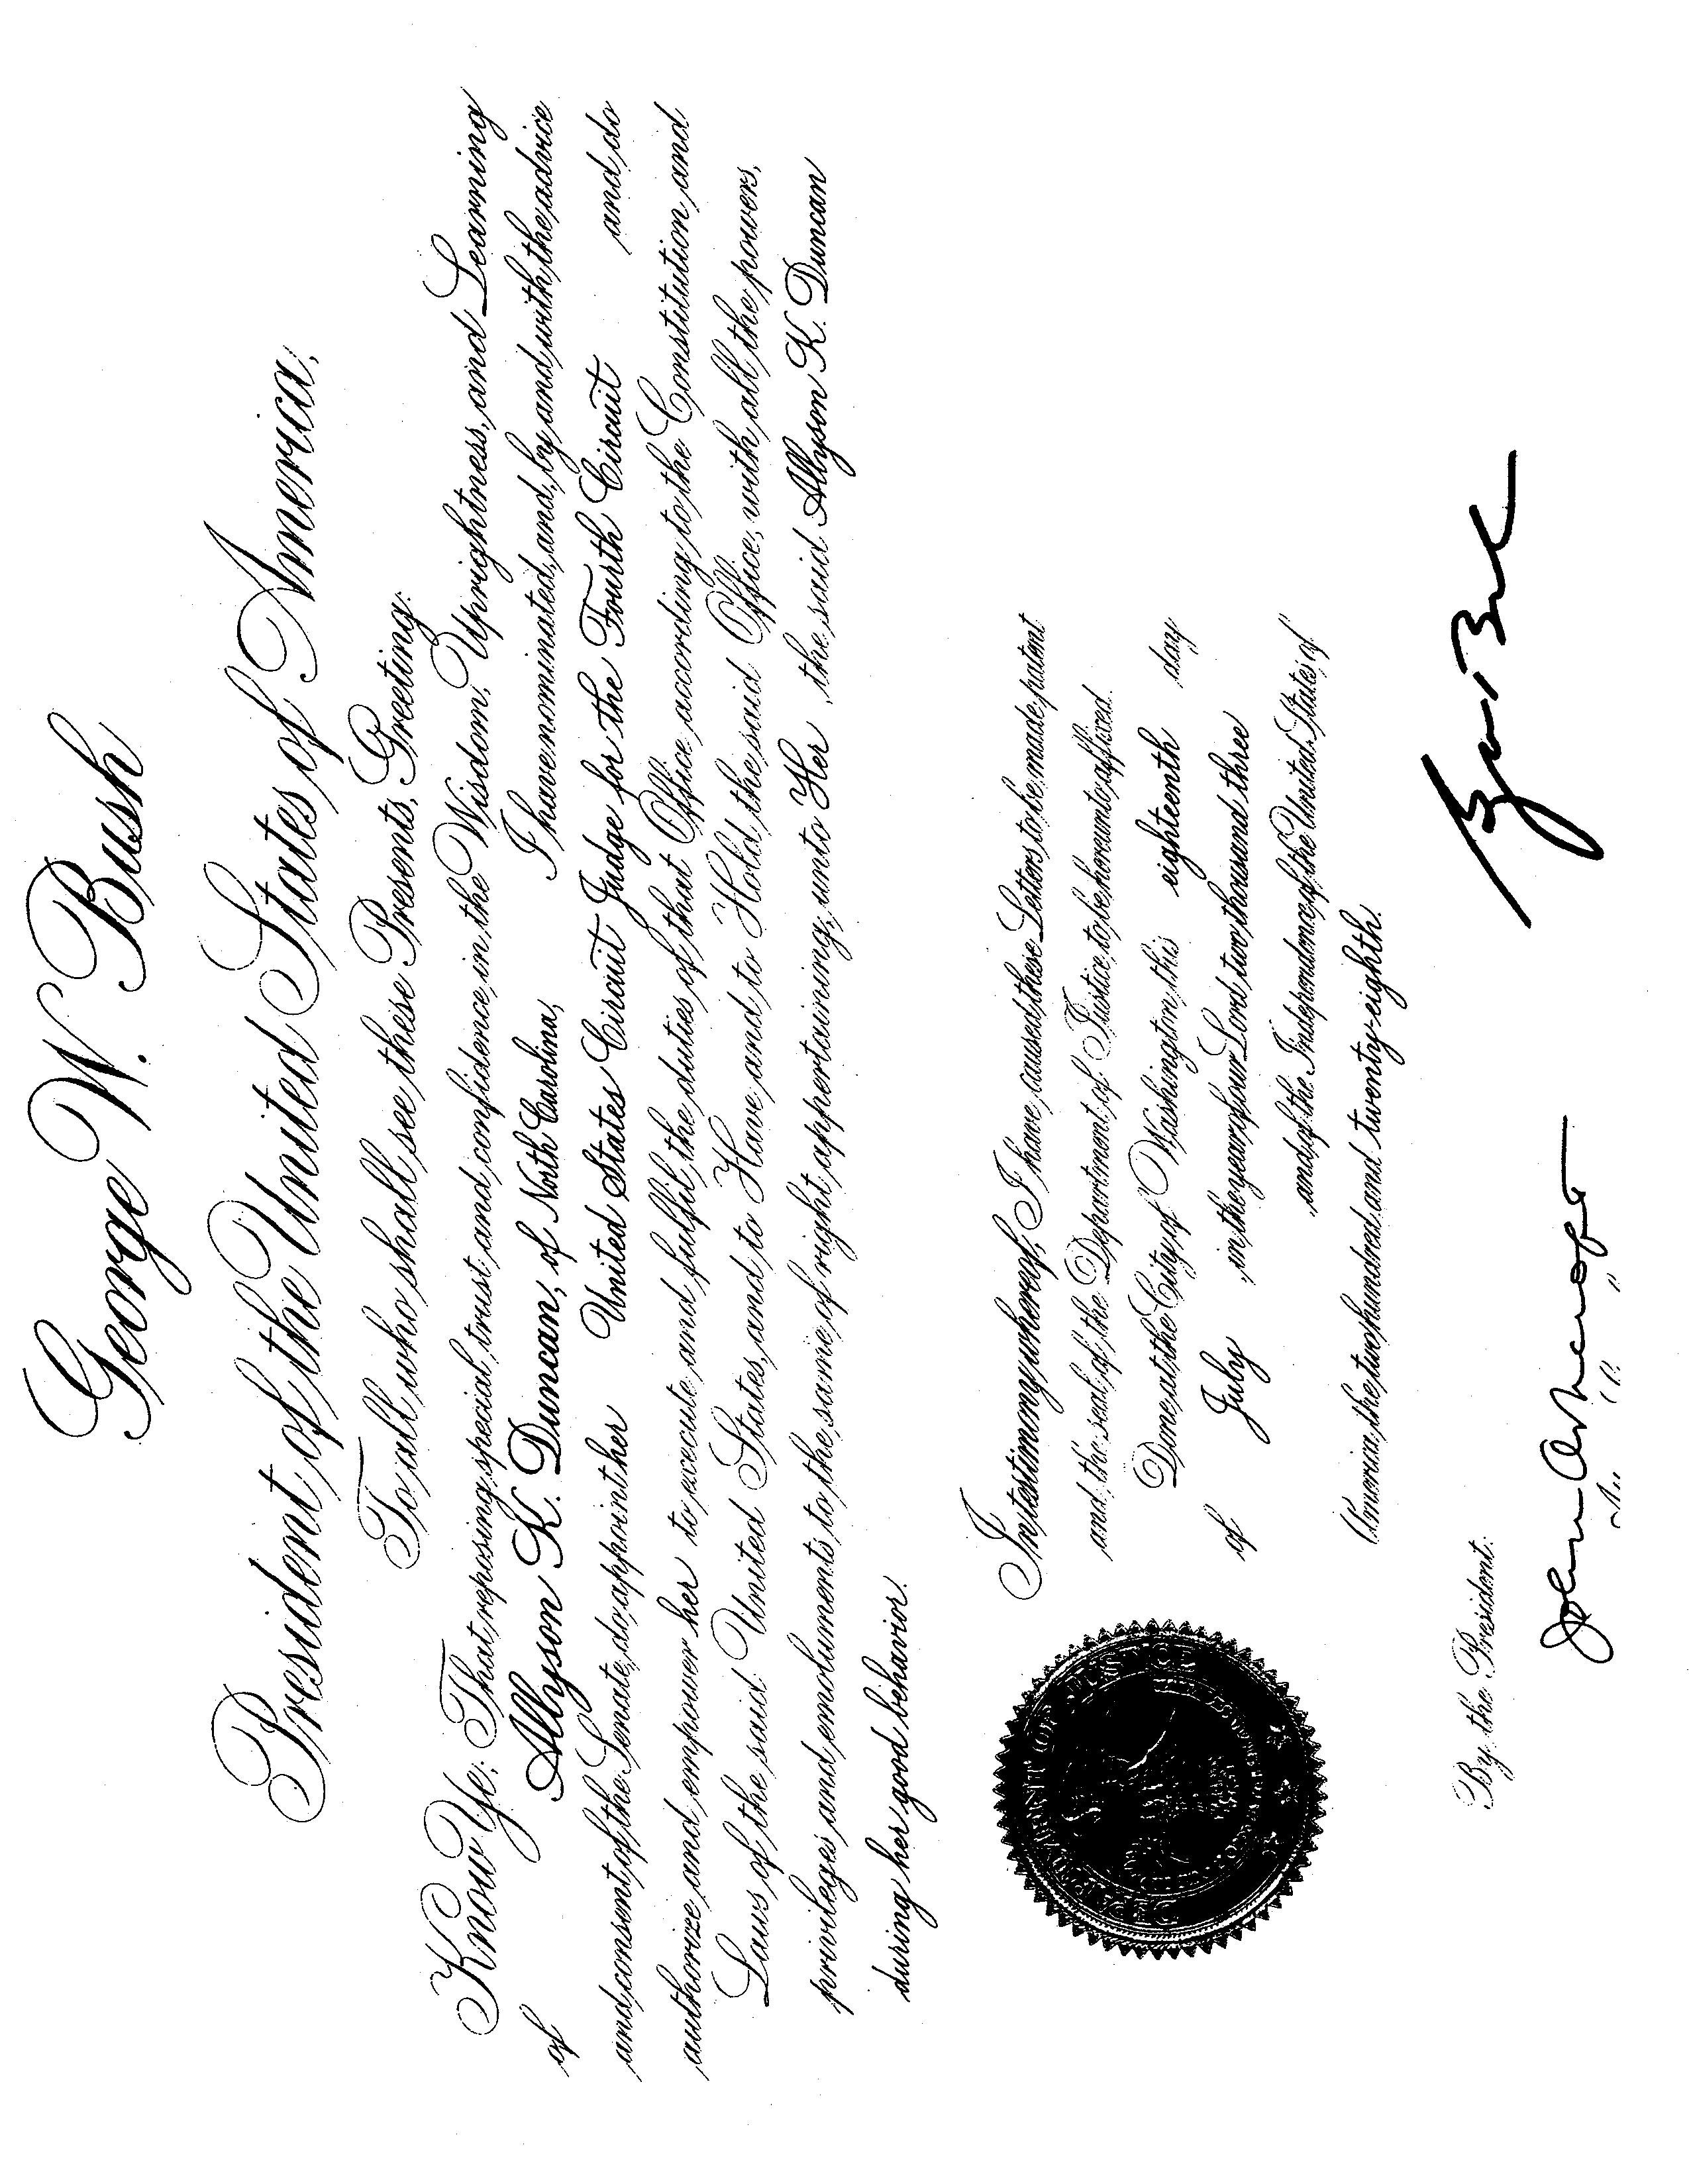 George W. Bush
President of the United States of America,
To all who shall see these Presents, Greeting:
Know Ye; That reposing special trust and confidence in the Wisdom, Uprightness, and Learning
of Allyson K. Duncan, of North Carolina, I have nominated, and, by and with the advice
and consent of the Senate, do appoint her United States Circuit Judge for the Fourth Circuit and do
authorize and empower her to execute and fulfil the duties of that Office according to the Constitution and
Laws of the said United States, and to Have and to Hold the said Office, with all the powers,
privileges and emoluments to the same of right appertaining, unto Her, the said Allyson K. Duncan
during her good behavior.
In testimony whereof, I have caused these Letters to be made patent
and the seal of the Department of Justice to be hereunto affixed.
Done at the City of Washington this eighteenth day
of July in the year of our Lord two thousand three
and of the Independence of the United States of
America the two hundred and twenty-eighth.
DEPARTMENT OF JUSTICE
By the President:
John Ashcroft